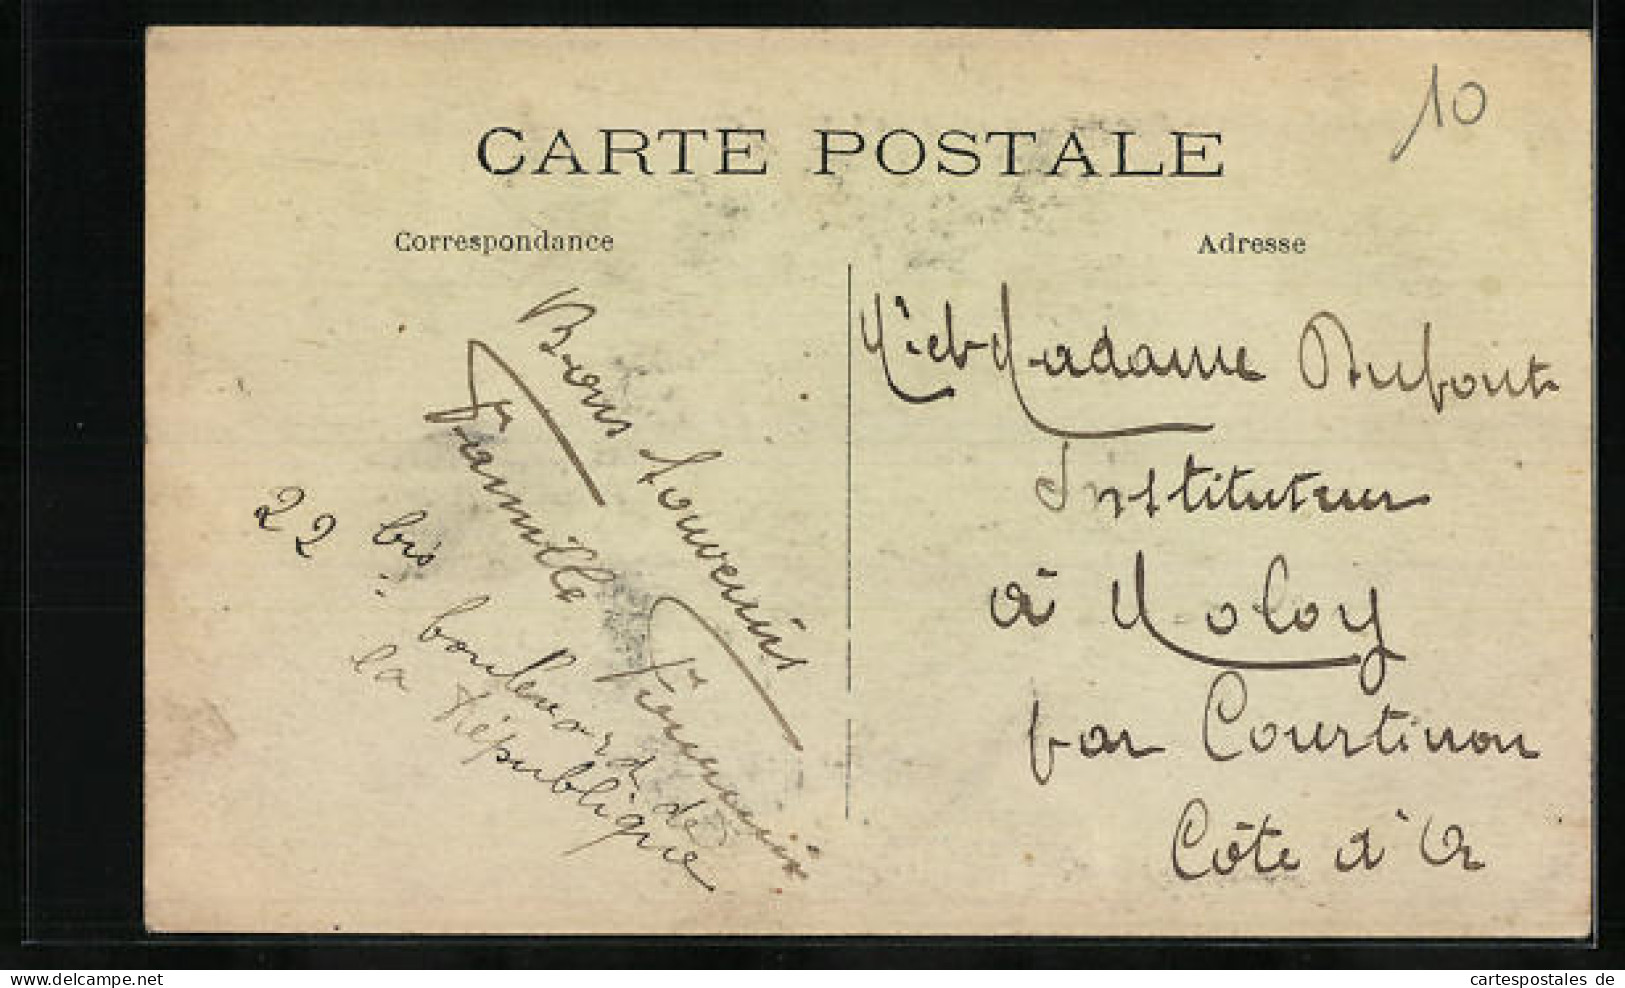 10
CARTE POSTALE
Correspondance
Adresse
Bons Souvenirs
Famille
22 bis boulevard de
la République
Mr et Madame Dufour
Instituteur
à Moloy
par Courtivron
Côte d'Or
cartespostales de